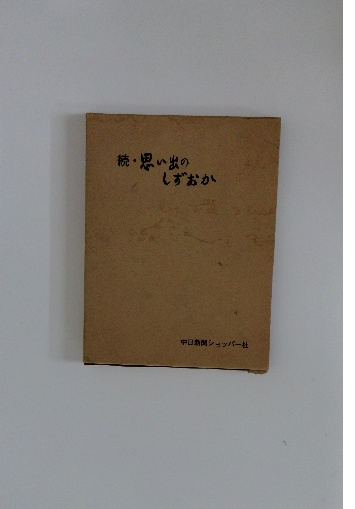 続・思い出の
しずおか
中日新聞ショッパー社